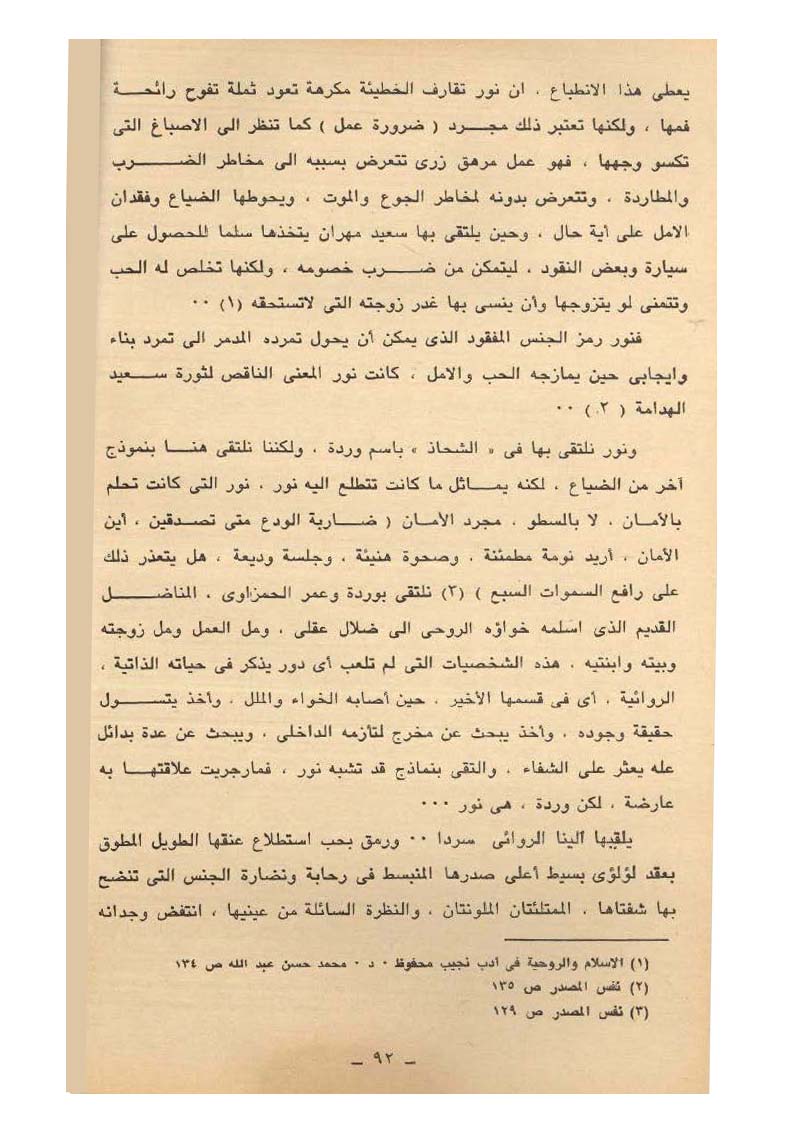 يعطى هذا الانطباع ، ان نور تقارف الخطيئة مكرهة تعود ثملة تفوح رائحة
فمها ، ولكنها تعتبر ذلك مجرد ( ضرورة عمل ) كما تنظر الى الاصباغ التى
تكسو وجهها ، فهو عمل مرهق زرى تتعرض بسببه الى مخاطر الضرب
والمطاردة ، وتتعرض بدونه لمخاطر الجوع والموت ، ويحوطها الضياع وفقدان
الامل على أية حال ، وحين يلتقى بها سعيد مهران يتخذها سلما للحصول على
سيارة وبعض النقود ، ليتمكن من ضرب خصومه ، ولكنها تخلص له الحب
وتتمنى لو يتزوجها وأن ينسى بها غدر زوجته التى لاتستحقه (١) ٠٠
فنور رمز الجنس المفقود الذى يمكن أن يحول تمرده المدمر الى تمرد بناء
وايجابى حين يمازجه الحب والامل ، كانت نور المعنى الناقص لثورة سعيد
الهدامة ( ٢ ) ٠٠
ونور نلتقى بها فى « الشحاذ » باسم وردة ، ولكننا نلتقى هنا بنموذج
آخر من الضياع ، لكنه يماثل ما كانت تتطلع اليه نور ، نور التى كانت تحلم
بالأمان ، لا بالسطو ، مجرد الأمان ( ضاربة الودع متى تصدقين ، أين
الأمان ، أريد نومة مطمئنة ، وصحوة هنيئة ، وجلسة وديعة ، هل يتعذر ذلك
على رافع السموات السبع ) (٣) نلتقى بوردة وعمر الحمزاوى ، المناضل
القديم الذى اسلمه خواؤه الروحى الى ضلال عقلى ، ومل العمل ومل زوجته
وبيته وابنتيه ، هذه الشخصيات التى لم تلعب أى دور يذكر فى حياته الذاتية ،
الروائية ، أى فى قسمها الأخير ، حين أصابه الخواء والملل ، وأخذ يتسول
حقيقة وجوده ، وأخذ يبحث عن مخرج لتأزمه الداخلى ، ويبحث عن عدة بدائل
عله يعثر على الشفاء ، والتقى بنماذج قد تشبه نور ، فمارجريت علاقتها به
عارضة ، لكن وردة ، هى نور ٠٠٠
يلقيها الينا الروائى سردا ٠٠ ورمق بحب استطلاع عنقها الطويل المطوق
بعقد لؤلؤى بسيط أعلى صدرها المنبسط فى رحابة ونضارة الجنس التى تنضح
بها شفتاها ، الممتلئتان الملونتان ، والنظرة السائلة من عينيها ، انتفض وجدانه
(١) الاسلام والروحية فى أدب نجيب محفوظ ٠ د ٠ محمد حسن عبد الله ص ١٣٤
(٢) نفس المصدر ص ١٣٥
(٣) نفس المصدر ص ١٢٩
ـ ٩٢ ـ